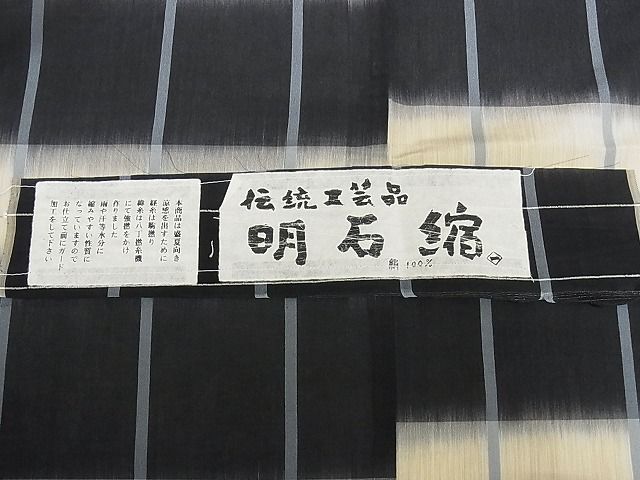 伝統工芸品
明石縮
絹100%
本商品は盛夏向き
涼感を出すために
経糸は駒撚り
緯糸は八丁撚糸機
にて強撚をかけ
作りました
雨や汗等水分に
縮みやすい性質に
なっていますので
お仕立て前にガード
加工をして下さい